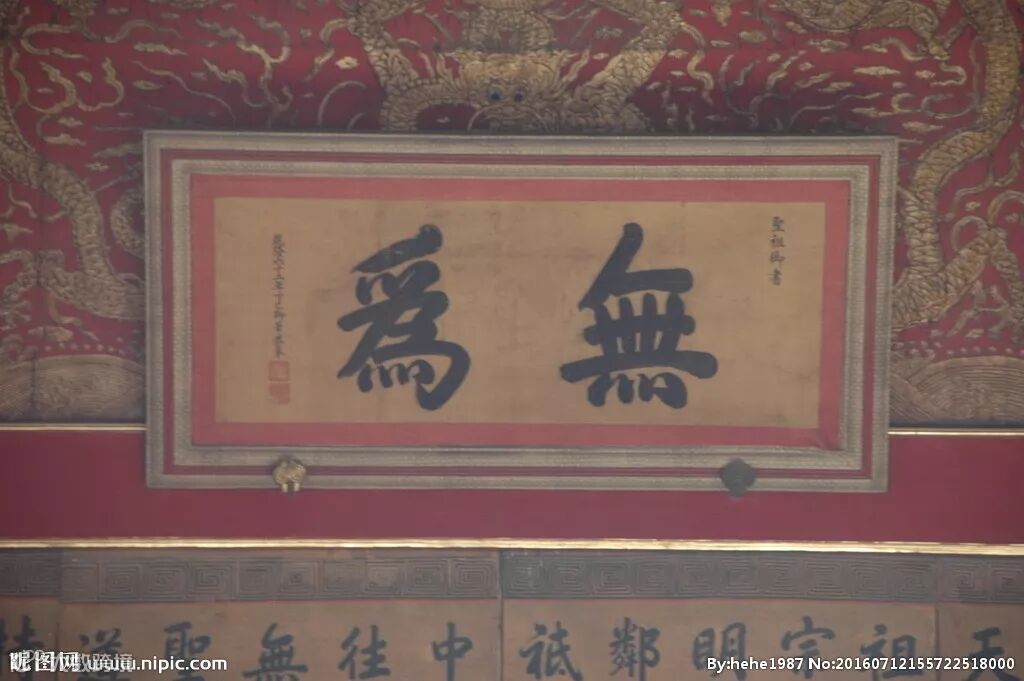 聖祖御書
無爲
乾隆六十二年丁巳御筆恭摹
天
祖
宗
明
鄰
祇
中
往
無
聖
道
昵图网 www.nipic.com
By:hehe1987 No:20160712155722518000